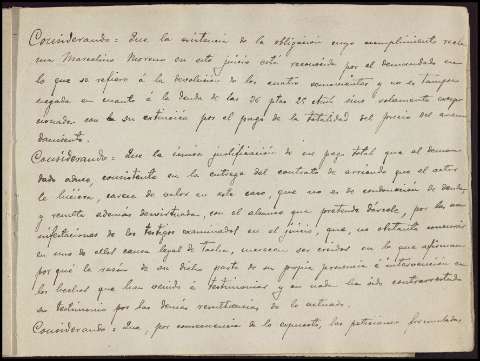 Considerando = Que la existencia de la obligación cuyo cumplimiento recla
ma Marcelino Moreno en este juicio está reconocida por el demandado en
lo que se refiere á la devolución de los cuatro y no es tampoco
negada en cuanto á la deuda de las 36 ptas 25 sino solamente excep
cionada con la su extinción por el pago de la totalidad del precio del arren
damiento.
Considerando = Que la única justificación de ese pago total que el deman
dado aduce, consistente en la entrega del contrato de arriendo que el actor
le hiciera, carece de valor en este caso, que no es de condonación de deuda,
y resulta además desvirtuada, con el alcance que pretende dársele, por las ma
nifestaciones de los testigos examinados en el juicio, que, no obstante concurrir
en uno de ellos causa legal de tacha, merecen ser creidos en lo que afirman
por que la razón de su dicho parte de su propia presencia é intervención en
los hechos que han venido á testimoniar y en nada ha sido contrarrestado
su testimonio por las demás resultancias de lo actuado.
Considerando = Que, por consecuencia de lo expuesto, las peticiones formuladas